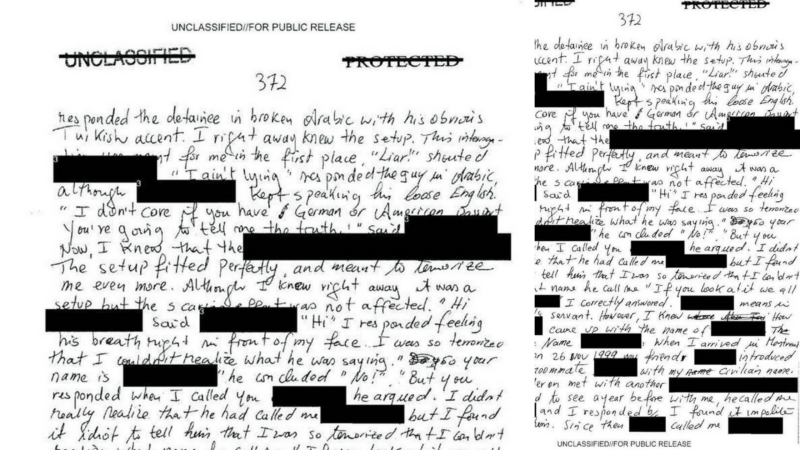 UNCLASSIFIED//FOR PUBLIC RELEASE
UNCLASSIFIED PROTECTED
372
responded the detainee in broken Arabic with his obvious
Turkish accent. I right away knew the setup. This interroga-
for me in the first place, "Liar!" shouted
"I ain't lying" responded the guy in Arabic,
although kept speaking his loose English.
"I don't care if you have German or American
You're going to tell me the truth." said
Now, I knew that the
The setup fitted perfectly, and meant to terrorize
me even more. Although I knew right away it was a
setup but the was not affected. "Hi
said "Hi" I responded feeling
his breath right in front of my face. I was so terrorized
that I couldn't realize what he was saying." So your
name is "he concluded "No!". "But you
responded when I called you he argued. I didn't
really realize that he had called me but I found
it idiot to tell him that I was so terrorized that I couldn't
PROTECTED
372
the detainee in broken Arabic with his obvious
accent. I right away knew the setup. This interroga-
for me in the first place, "Liar!" shouted
"I ain't lying" responded the guy in Arabic,
kept speaking his loose English.
care if you have German or American
to tell me the truth." said
knew that the
fitted perfectly, and meant to terrorize
more. Although I knew right away it was a
was not affected. "Hi
said "Hi" I responded feeling
right in front of my face. I was so terrorized
realize what he was saying." So your
"he concluded "No!". "But you
when I called you he argued. I didn't
that he had called me but I found
tell him that I was so terrorized that I couldn't
name he call me "If you look at it we all
I correctly answered. means in
servant. However, I knew How
came up with the name of The
Name When I arrived in Montreal
on 26 Nov 1999 my friend introduced
roommate with my civilian name.
met with another
to see a year before with me, he called me
and I responded I found it impolite
Since then called me
UNCLASSIFIED//FOR PUBLIC RELEASE